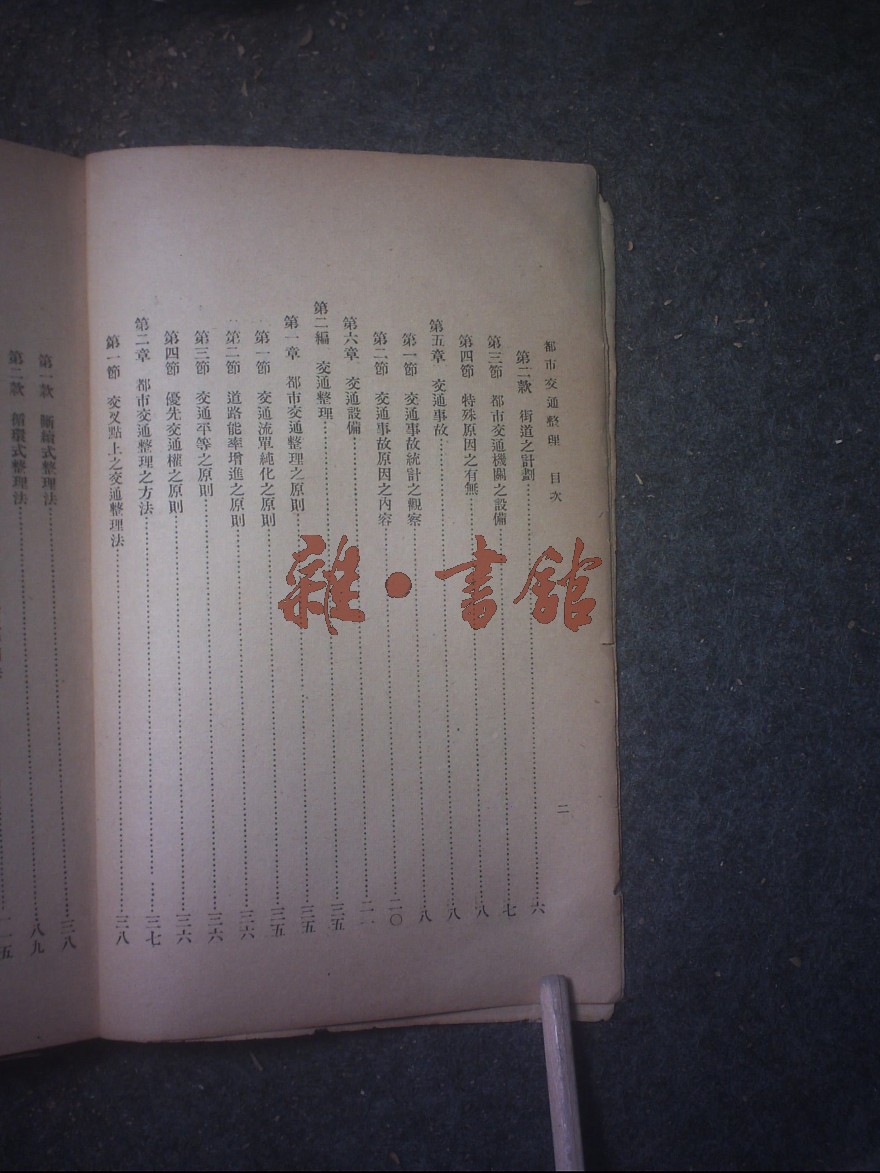 都市交通整理　目次
二
第二款　街道之計劃……六
第三節　都市交通機關之設備……七
第四節　特殊原因之有無……八
第五章　交通事故……八
第一節　交通事故統計之觀察……八
第二節　交通事故原因之內容……二〇
第六章　交通設備……二一
第二編　交通整理……三五
第一章　都市交通整理之原則……三五
第一節　交通流單純化之原則……三五
第二節　道路能率增進之原則……三六
第三節　交通平等之原則……三六
第四節　優先交通權之原則……三六
第二章　都市交通整理之方法……三七
第一節　交叉點上之交通整理法……三八
第一款　斷續式整理法……三八
第二款　循環式整理法……八九
雜·書館